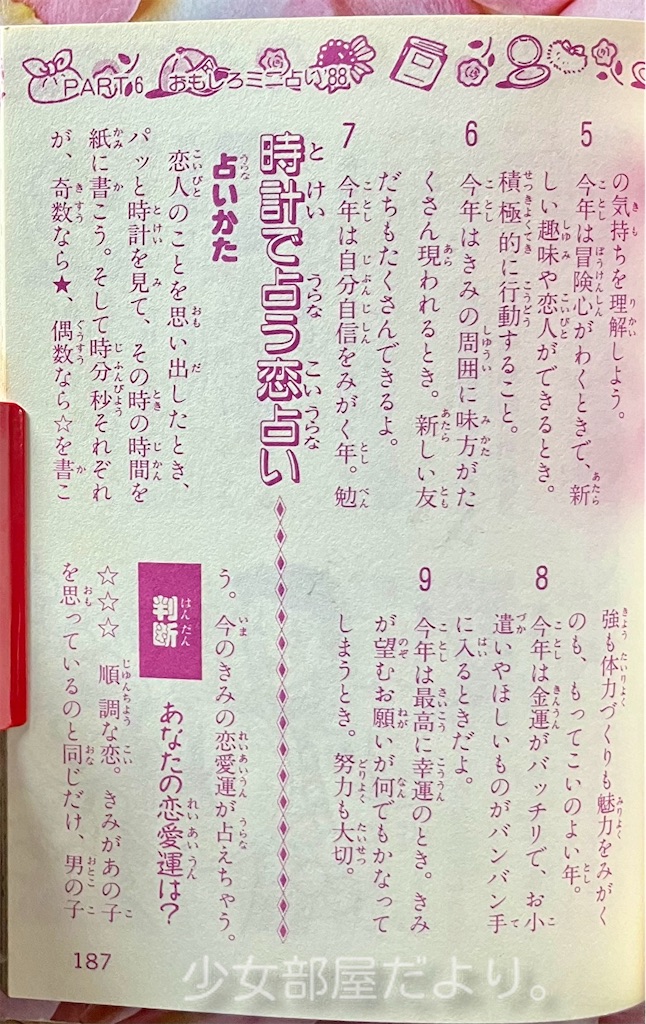 PART.6 おもしろミニ占い'88
の気持ちを理解しよう。
5 今年は冒険心がわくときで、新
しい趣味や恋人ができるとき。
積極的に行動すること。
6 今年はきみの周囲に味方がた
くさん現われるとき。新しい友
だちもたくさんできるよ。
7 今年は自分自信をみがく年。勉
強も体力づくりも魅力をみがく
のも、もってこいのよい年。
8 今年は金運がバッチリで、お小
遣いやほしいものがバンバン手
に入るときだよ。
9 今年は最高に幸運のとき。きみ
が望むお願いが何でもかなって
しまうとき。努力も大切。
時計で占う恋占い
占いかた
恋人のことを思い出したとき、
パッと時計を見て、その時の時間を
紙に書こう。そして時分秒それぞれ
が、奇数なら★、偶数なら☆を書こ
う。今のきみの恋愛運が占えちゃう。
判断 あなたの恋愛運は?
☆☆☆ 順調な恋。きみがあの子
を思っているのと同じだけ、男の子
187
少女部屋だより。